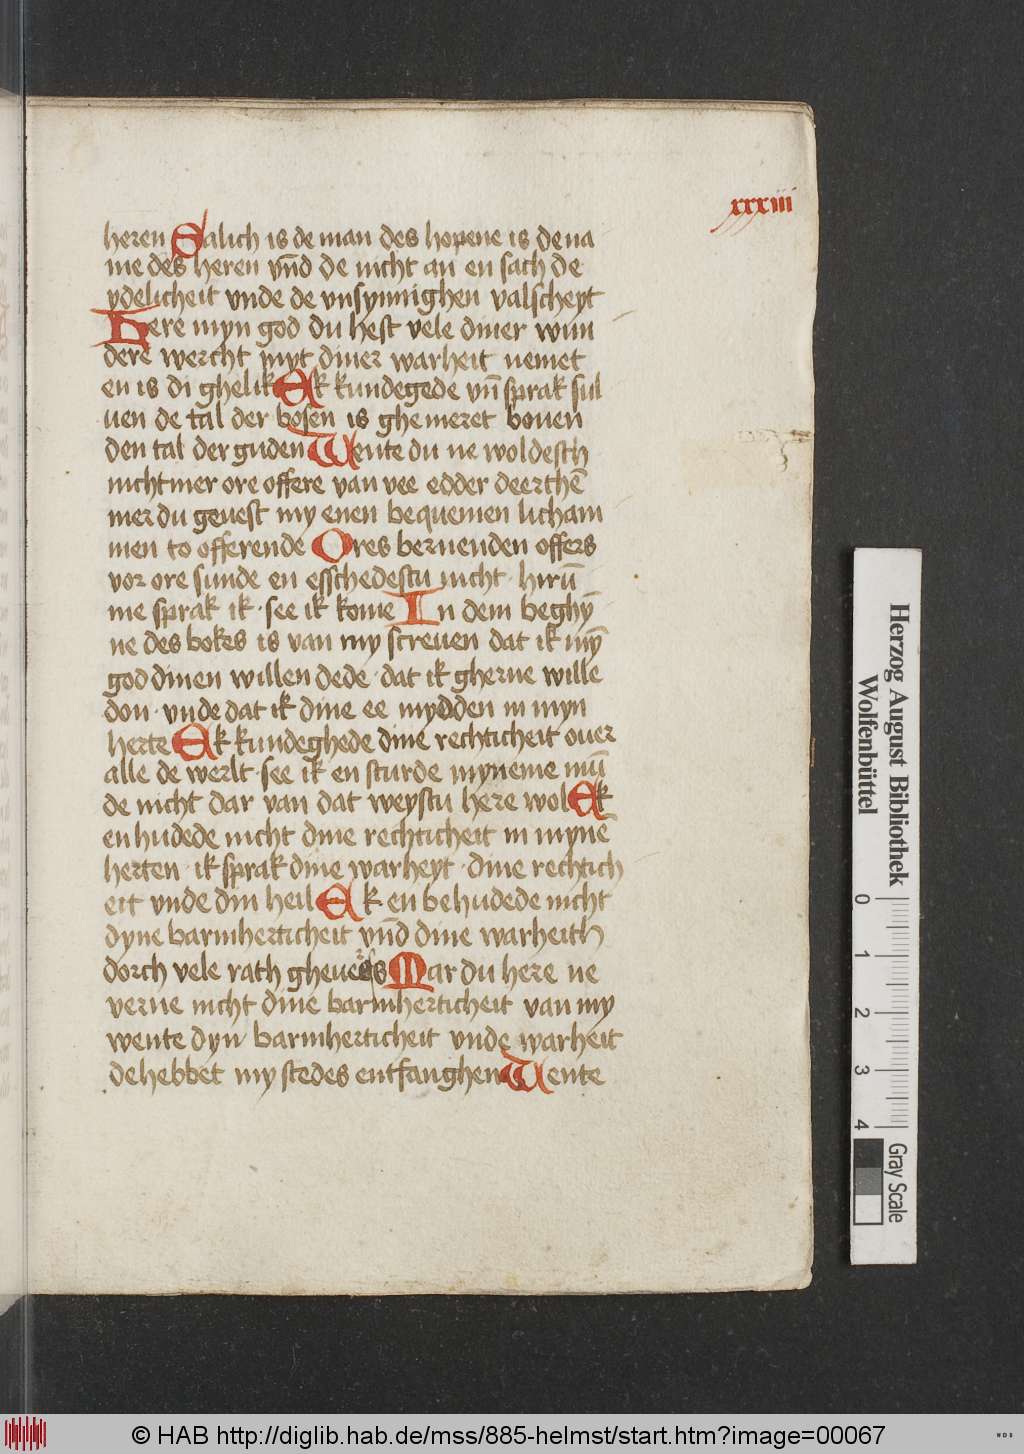 xxxiii
heren Salich is de man des hopene is de na
me des heren vn̄d de nicht an en sach de
ydelicheit vnde de vnsynnighen valscheyt
Here myn god du hest vele diner wun
dere wercht myt diner warheit nemet
en is di ghelik Ek kundegede vn̄ sprak sul
uen de tal der bosen is ghemeret bouen
den tal der guden Wente du ne woldesth
nicht mer ore offere van vee edder deerthē
mer du geuest my enen bequemen licham
men to offerende Ores bernenden offers
vor ore sunde en esschedestu nicht · hirū
me sprak ik · see ik kome In dem beghȳ
ne des bokes is van my screuen dat ik mȳ
god dinen willen dede · dat ik gherne wille
don · vnde dat ik dine ee mydden in myn
herte Ek kundeghede dine rechticheit ouer
alle de werlt · see ik en sturde myneme mū
de nicht dar van dat weystu here wol Ek
en hudede nicht dine rechticheit in mynē
herten · ik sprak dine warheyt · dine rechtich
eit vnde din heil Ek en behudede nicht
dyne barmherticheit vn̄d dine warheith
dorch vele rath gheue es Mar du here ne
verne nicht dine barmherticheit van my
wente dyn barmherticheit vnde warheit
de hebbet my stedes entfanghen Wente
Herzog August Bibliothek
Wolfenbüttel
0 1 2 3 4
Gray Scale
© HAB http://diglib.hab.de/mss/885-helmst/start.htm?image=00067